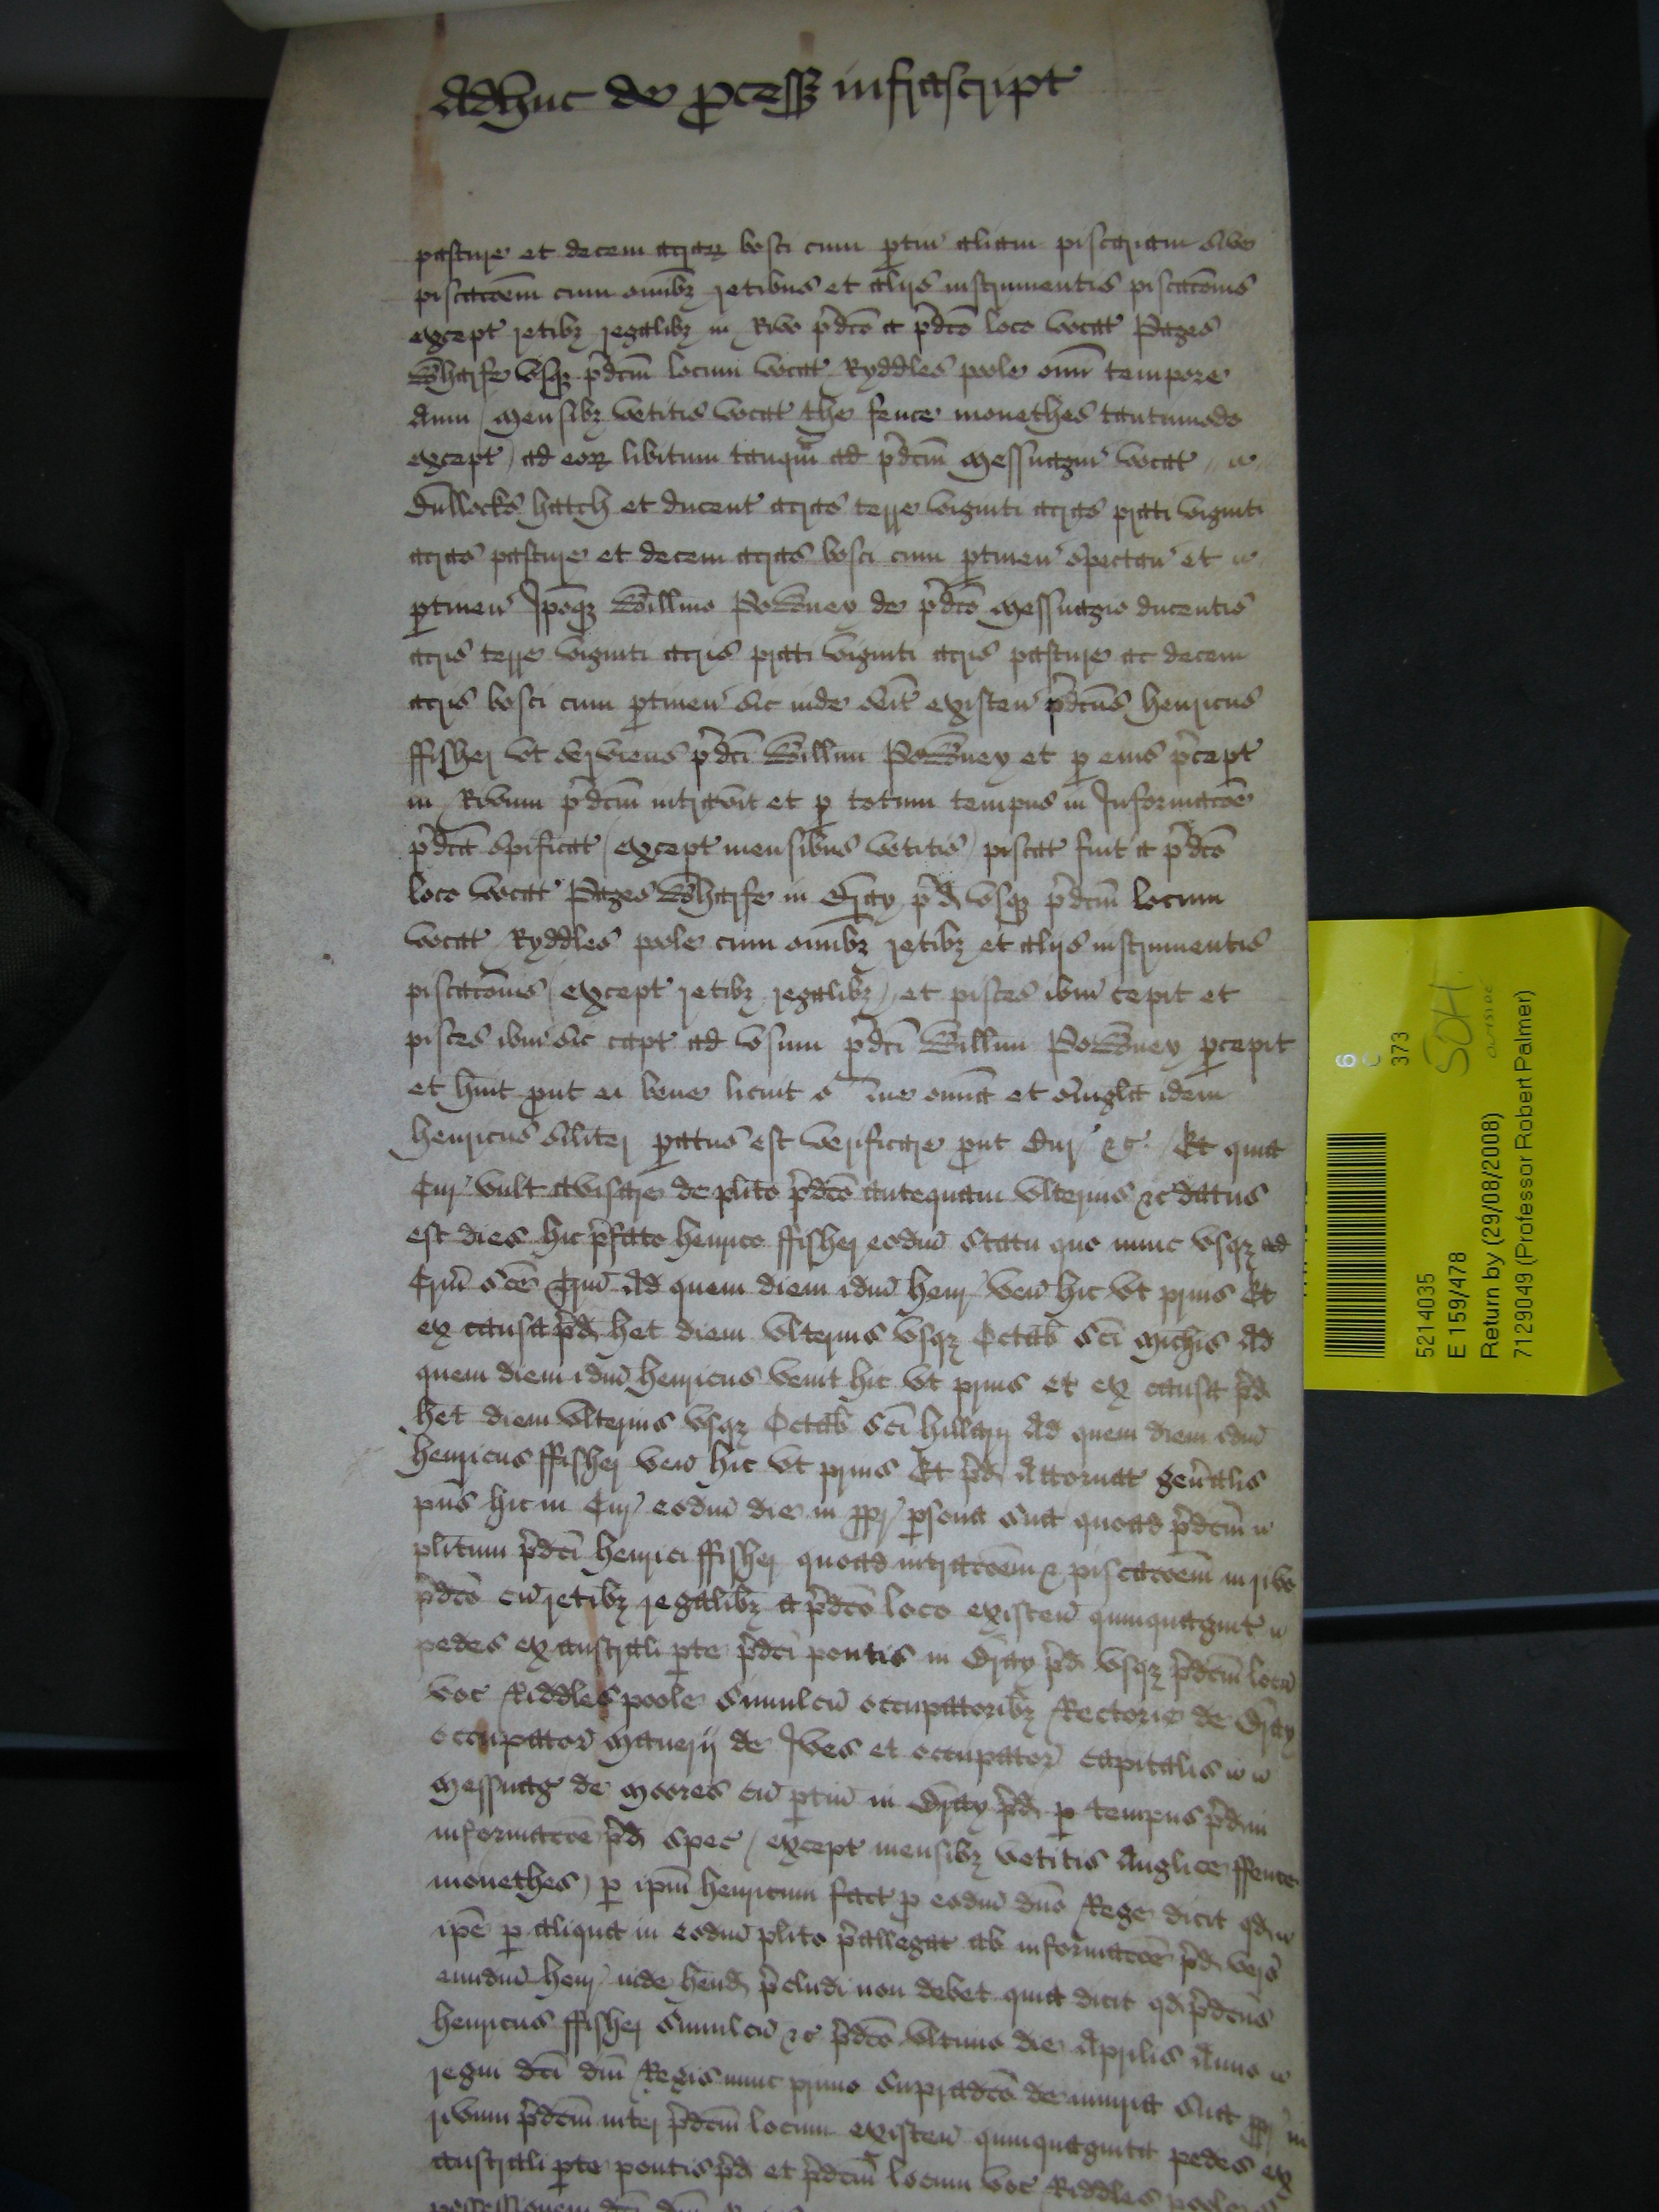 Adhuc de pcess infrascript
pasture et decem acraꝝ bosci cum ptin aliam piscariam sive
piscacoem cum omibꝫ retibus et alijs instrumentis piscacois
except retibꝫ regalibꝫ in Rivo pdco a pdco loco vocat Pages
Wharfe vsqꝫ pdcm locum vocat Ryddles poole omi tempore
Anni / mensibꝫ vetitis vocat the fence monethes tantumodo
except / ad eoꝝ libitum tanqm ad pdcm Messuagm vocat
Bullocks hatch et ducent acras terre viginti acras prati viginti
acras pasture et decem acras bosci cum ptinen spectan et
ptinen Ipoqꝫ Willmo Powney de pdco Messuagio ducentis
acris terre viginti acris prati viginti acris pasture ac decem
acris bosci cum ptinen sic inde seit existen pdcus henricus
ffisher vt serviens pdci Willmi Powney et p eius pcept
in Rivum pdcm intravit et p totum tempus in Informacoe
pdca spificat / except mensibus vetitis / piscat fuit a pdco
loco vocat Pages Wharfe in Bray pd vsqꝫ pdcm locum
vocat Ryddles poole cum omibꝫ retibꝫ et alijs instrumentis
piscacois / except retibꝫ regalibꝫ / et pisces ibm cepit et
pisces ibm sic capt ad vsum pdci Willmi Powney pcepit
et huit put ei bene licuit omia et singla idem
henricus siliter patus est verificare put Cur &c Et quia
Cur vult avisare de plito pdco antequam vlterius &c datus
est dies hic pfato henrico ffisher eodm statu quo nunc vsqꝫ ad
Crm sce Trin Ad quem diem idm henr ven hic vt prius Et
ex causa pd het diem vlterius vsqꝫ Octab sci Michis Ad
quem diem idm henricus venit hic vt prius et ex causa pd
het diem vlterius vsqꝫ Octab sci hillarij Ad quem diem idm
henricus ffisher ven hic vt prius Et pd Attornat genalis
pns hic in Cur eodm die in ppr psona sua quoad pdcm
plitum pdci henrici ffisher quoad intracoem & piscacoem in rivo
pdco cu retibꝫ regalibꝫ a pdco loco existen quinquagint
pedes ex australi pte pdci pontis in Bray pd vsqꝫ pdcm locu
voc Riddles poole simulcu occupatoribꝫ Rectorie de Bray
occupator Manerij de Ives et occupator capitalis
Messuag de Moores cu ptin in Bray pd p tempus pd in
informacoe pd spec / except mensibꝫ vetitis Anglice ffence
monethes / p ipm henricum fact p eodm dno Rege dicit qd
ipe p aliqua in eodm plito pallegat ab informacoe pd vers
eundm henr inde hend pcludi non debet quia dicit qd pdcus
henricus ffisher simulcu &c pdco vltimo die Aprilis Anno
regni dci dni Regis nunc primo supradco de iniuria sua ppr in
rivum pdcm inter pdcm locum existen quinquaginta pedes ex
australi pte pontis pd et pdcm locum voc Riddles poole
possessionem dci dni
6
C
373
SOH
outside
5214035
E 159/478
Return by (29/08/2008)
7129049 (Professor Robert Palmer)